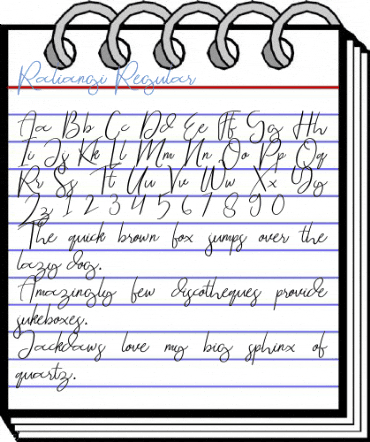 Ralianqi Regular
Aa Bb Cc Dd Ee Ff Gg Hh
Ii Jj Kk Ll Mm Nn Oo Pp Qq
Rr Ss Tt Uu Vv Ww Xx Yy
Zz 1 2 3 4 5 6 7 8 9 0
The quick brown fox jumps over the
lazy dog.
Amazingly few discotheques provide
jukeboxes.
Jackdaws love my big sphinx of
quartz.